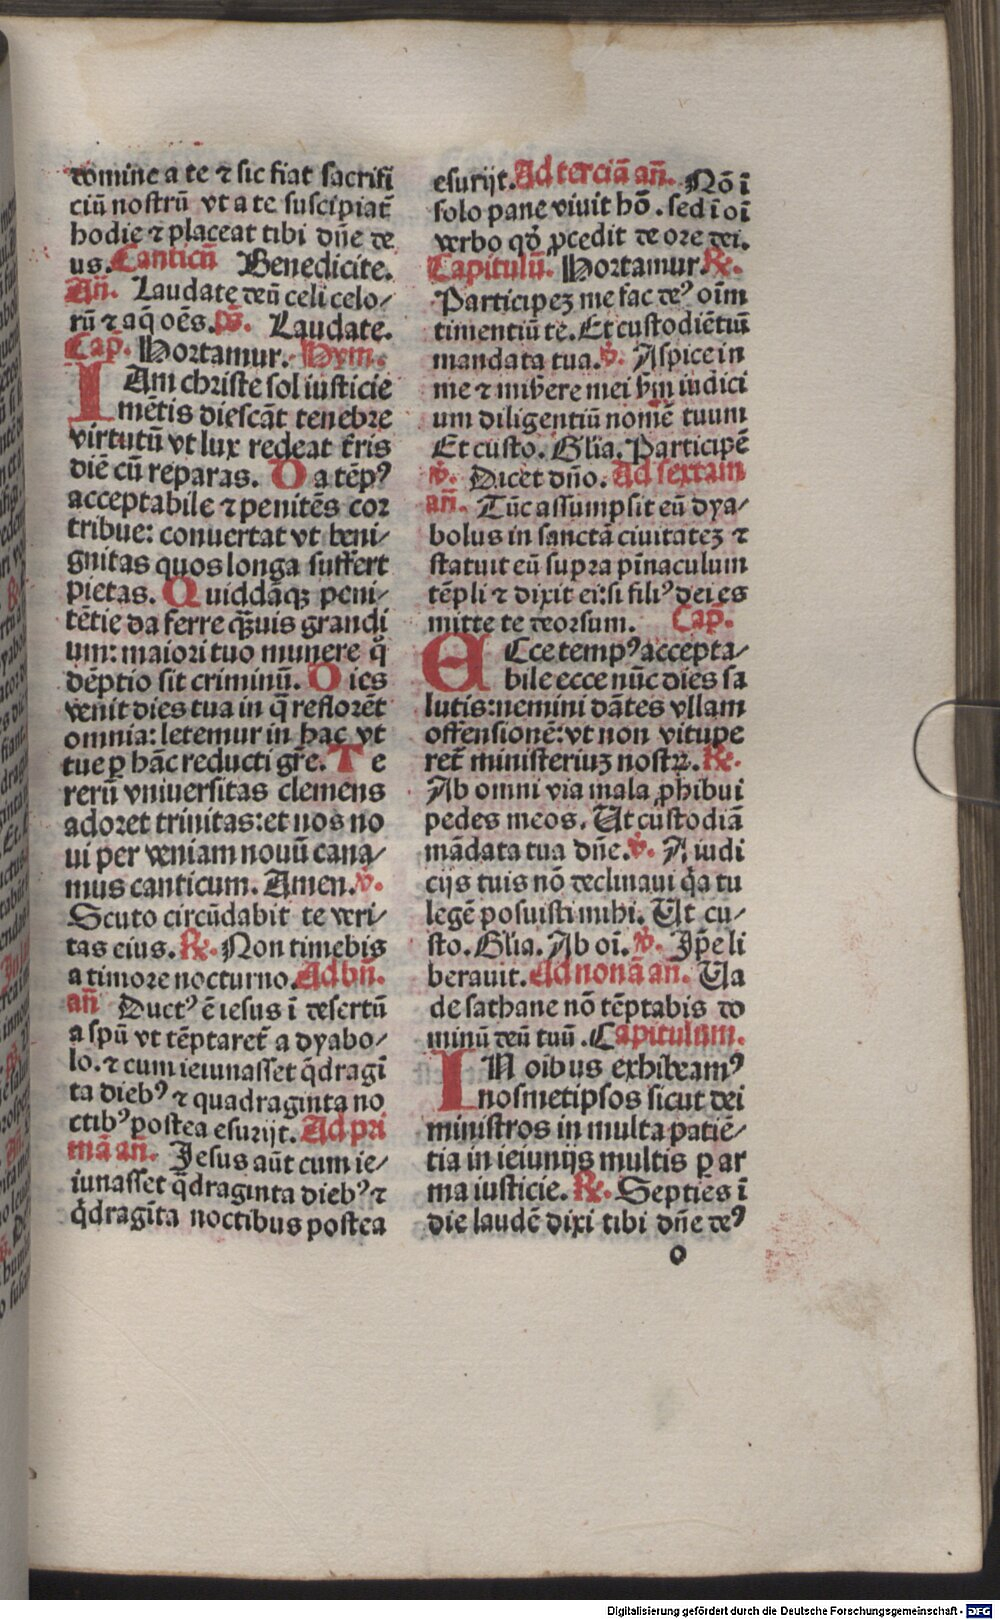 domine a te ⁊ sic fiat sacrifi
ciū nostrū vt a te suscipiat᷑
hodie ⁊ placeat tibi dn̄e de
us. Canticū Benedicite.
An̄. Laudate deū celi celo⸗
rū ⁊ aq̄ oēs. p̄s. Laudate.
Cap̄. Hortamur. Hym.
IAm christe sol iusticie
mētis diescāt tenebre
virtutū vt lux redeat t̄ris
diē cū reparas. D a tēpꝰ
acceptabile ⁊ penitēs cor
tribue: conuertat vt beni⸗
gnitas quos longa suffert
pietas. Q uiddāqꝫ peni⸗
tētie da ferre qͣꝫuis grandi
um: maiori tuo munere q̊
dēptio sit criminū. D ies
venit dies tua in q̄ reflorēt
omnia: letemur in hac vt
tue ꝑ hāc reducti gr̄e. T e
rerū vniuersitas clemens
adoret trinitas: et nos no
ui per veniam nouū cana⸗
mus canticum. Amen. v̄.
Scuto circūdabit te veri⸗
tas eius. ℞. Non timebis
a timore nocturno. Ad bn̄.
an̄ Ductꝰ ē iesus ī desertū
a spū vt tēptaret᷑ a dyabo⸗
lo. ⁊ cum ieiunasset q̄dragī
ta diebꝰ ⁊ quadraginta no
ctibꝰ postea esurijt. Ad pri
mā an̄. Jesus aūt cum ie⸗
iunasset q̄draginta diebꝰ ⁊
q̄dragīta noctibus postea
esurijt. Ad terciā an̄. Nō ī
solo pane viuit hō. sed ī oī
verbo qd̓ ꝓcedit de ore dei.
Capitulū. Hortamur. ℞.
Participeꝫ me fac deꝰ oīm
timentiū te. Et custodiētiū
mandata tua. v̄. Aspice in
me ⁊ mis̄ere mei s̄m iudici
um diligentiū nomē tuum
Et custo. Glīa. Participē
v̄. Dicet dn̄o. Ad sextam
an̄. Tūc assumpsit eū dya⸗
bolus in sanctā ciuitateꝫ ⁊
statuit eū supra pīnaculum
tēpli ⁊ dixit ei: si filiꝰ dei es
mitte te deorsum. Cap̄.
ECce tempꝰ accepta⸗
bile ecce nūc dies sa
lutis: nemini dātes vllam
offensionē: vt non vitupe
ret᷑ ministeriuꝫ nostꝝ. ℞.
Ab omni via mala ꝓhibui
pedes meos. Ut custodiā
mādata tua dn̄e. v̄. A iudi
cijs tuis nō declinaui q̄a tu
legē posuisti mihi. Ut cu⸗
sto. Glīa. Ab oī. v̄. Ip̄e li
berauit. Ad nonā an̄. Ua
de sathane nō tēptabis do
minū deū tuū. Capitulum.
IN oībus exhibeamꝰ
nosmetipsos sicut dei
ministros in multa patiē⸗
tia in ieiunijs multis ꝑ ar
ma iusticie. ℞. Septies ī
die laudē dixi tibi dn̄e deꝰ
o
Digitalisierung gefördert durch die Deutsche Forschungsgemeinschaft - DFG